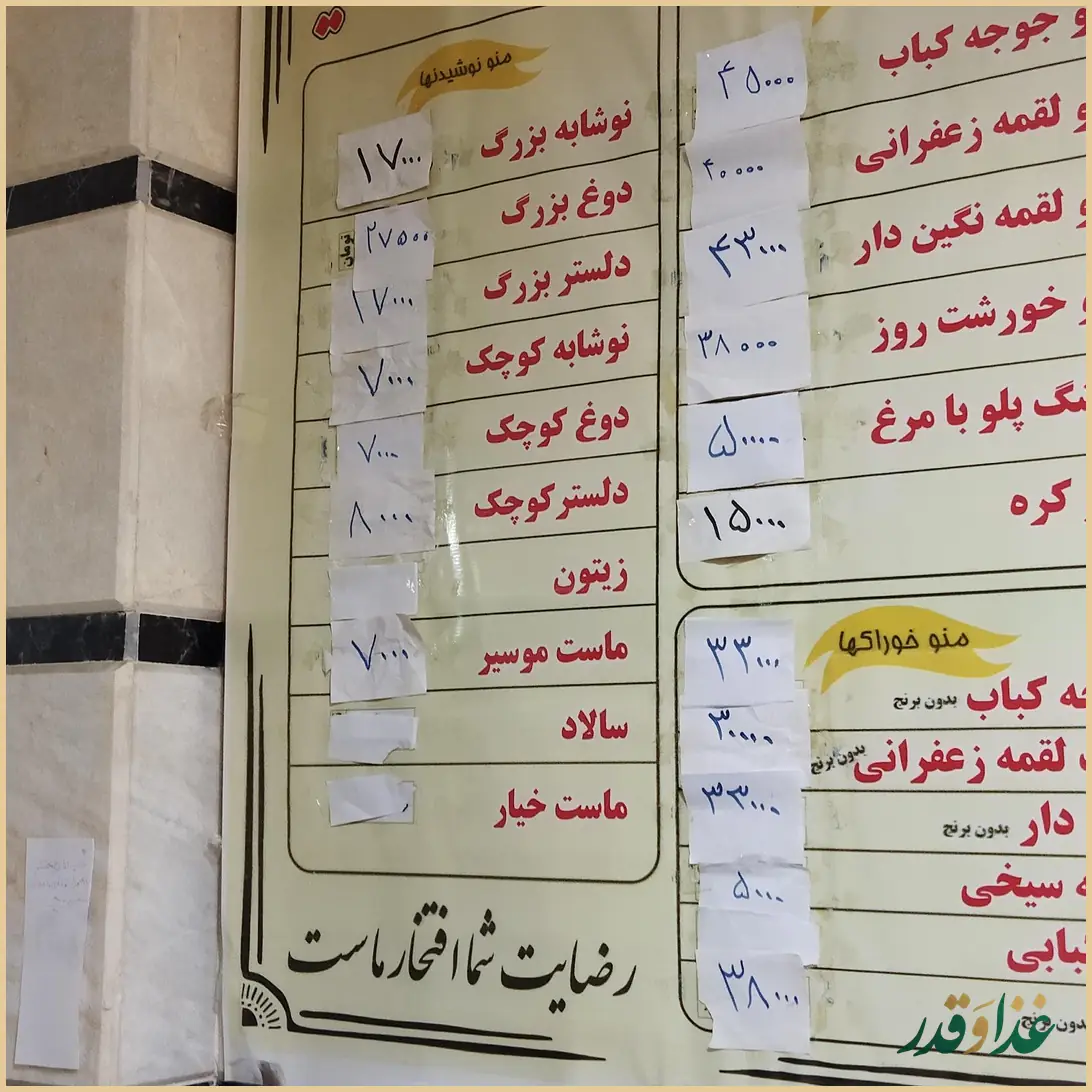 و جوجه کباب ۴۵۰۰۰
و لقمه زعفرانی ۴۰۰۰۰
و لقمه نگین دار ۴۳۰۰۰
و خورشت روز ۳۸۰۰۰
پلو با مرغ ۵۰۰۰۰
کره ۱۵۰۰۰
منو خوراکها
کباب بدون برنج ۳۳۰۰۰
لقمه زعفرانی بدون برنج ۳۰۰۰۰
دار بدون برنج ۳۳۰۰۰
سیخی ۵۰۰۰
۳۸۰۰۰
منو نوشیدنها
نوشابه بزرگ ۱۷۰۰۰
دوغ بزرگ ۲۷۵۰۰ تومان
دلستر بزرگ ۱۷۰۰۰
نوشابه کوچک ۷۰۰۰
دوغ کوچک ۷۰۰۰
دلستر کوچک ۸۰۰۰
زیتون
ماست موسیر ۷۰۰۰
سالاد
ماست خیار
رضایت شما افتخار ماست
غذا و قدر